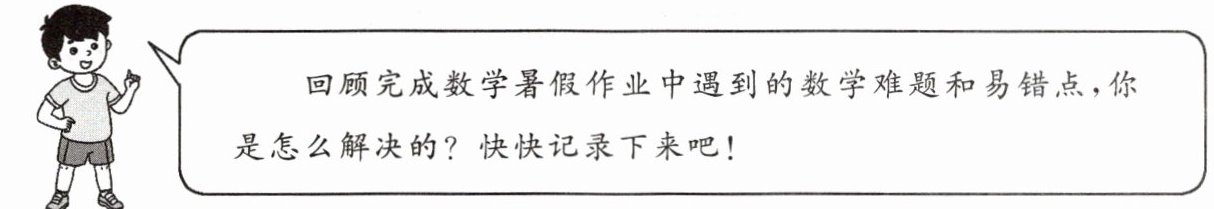 回顾完成数学暑假作业中遇到的数学难题和易错点,你
是怎么解决的?快快记录下来吧!